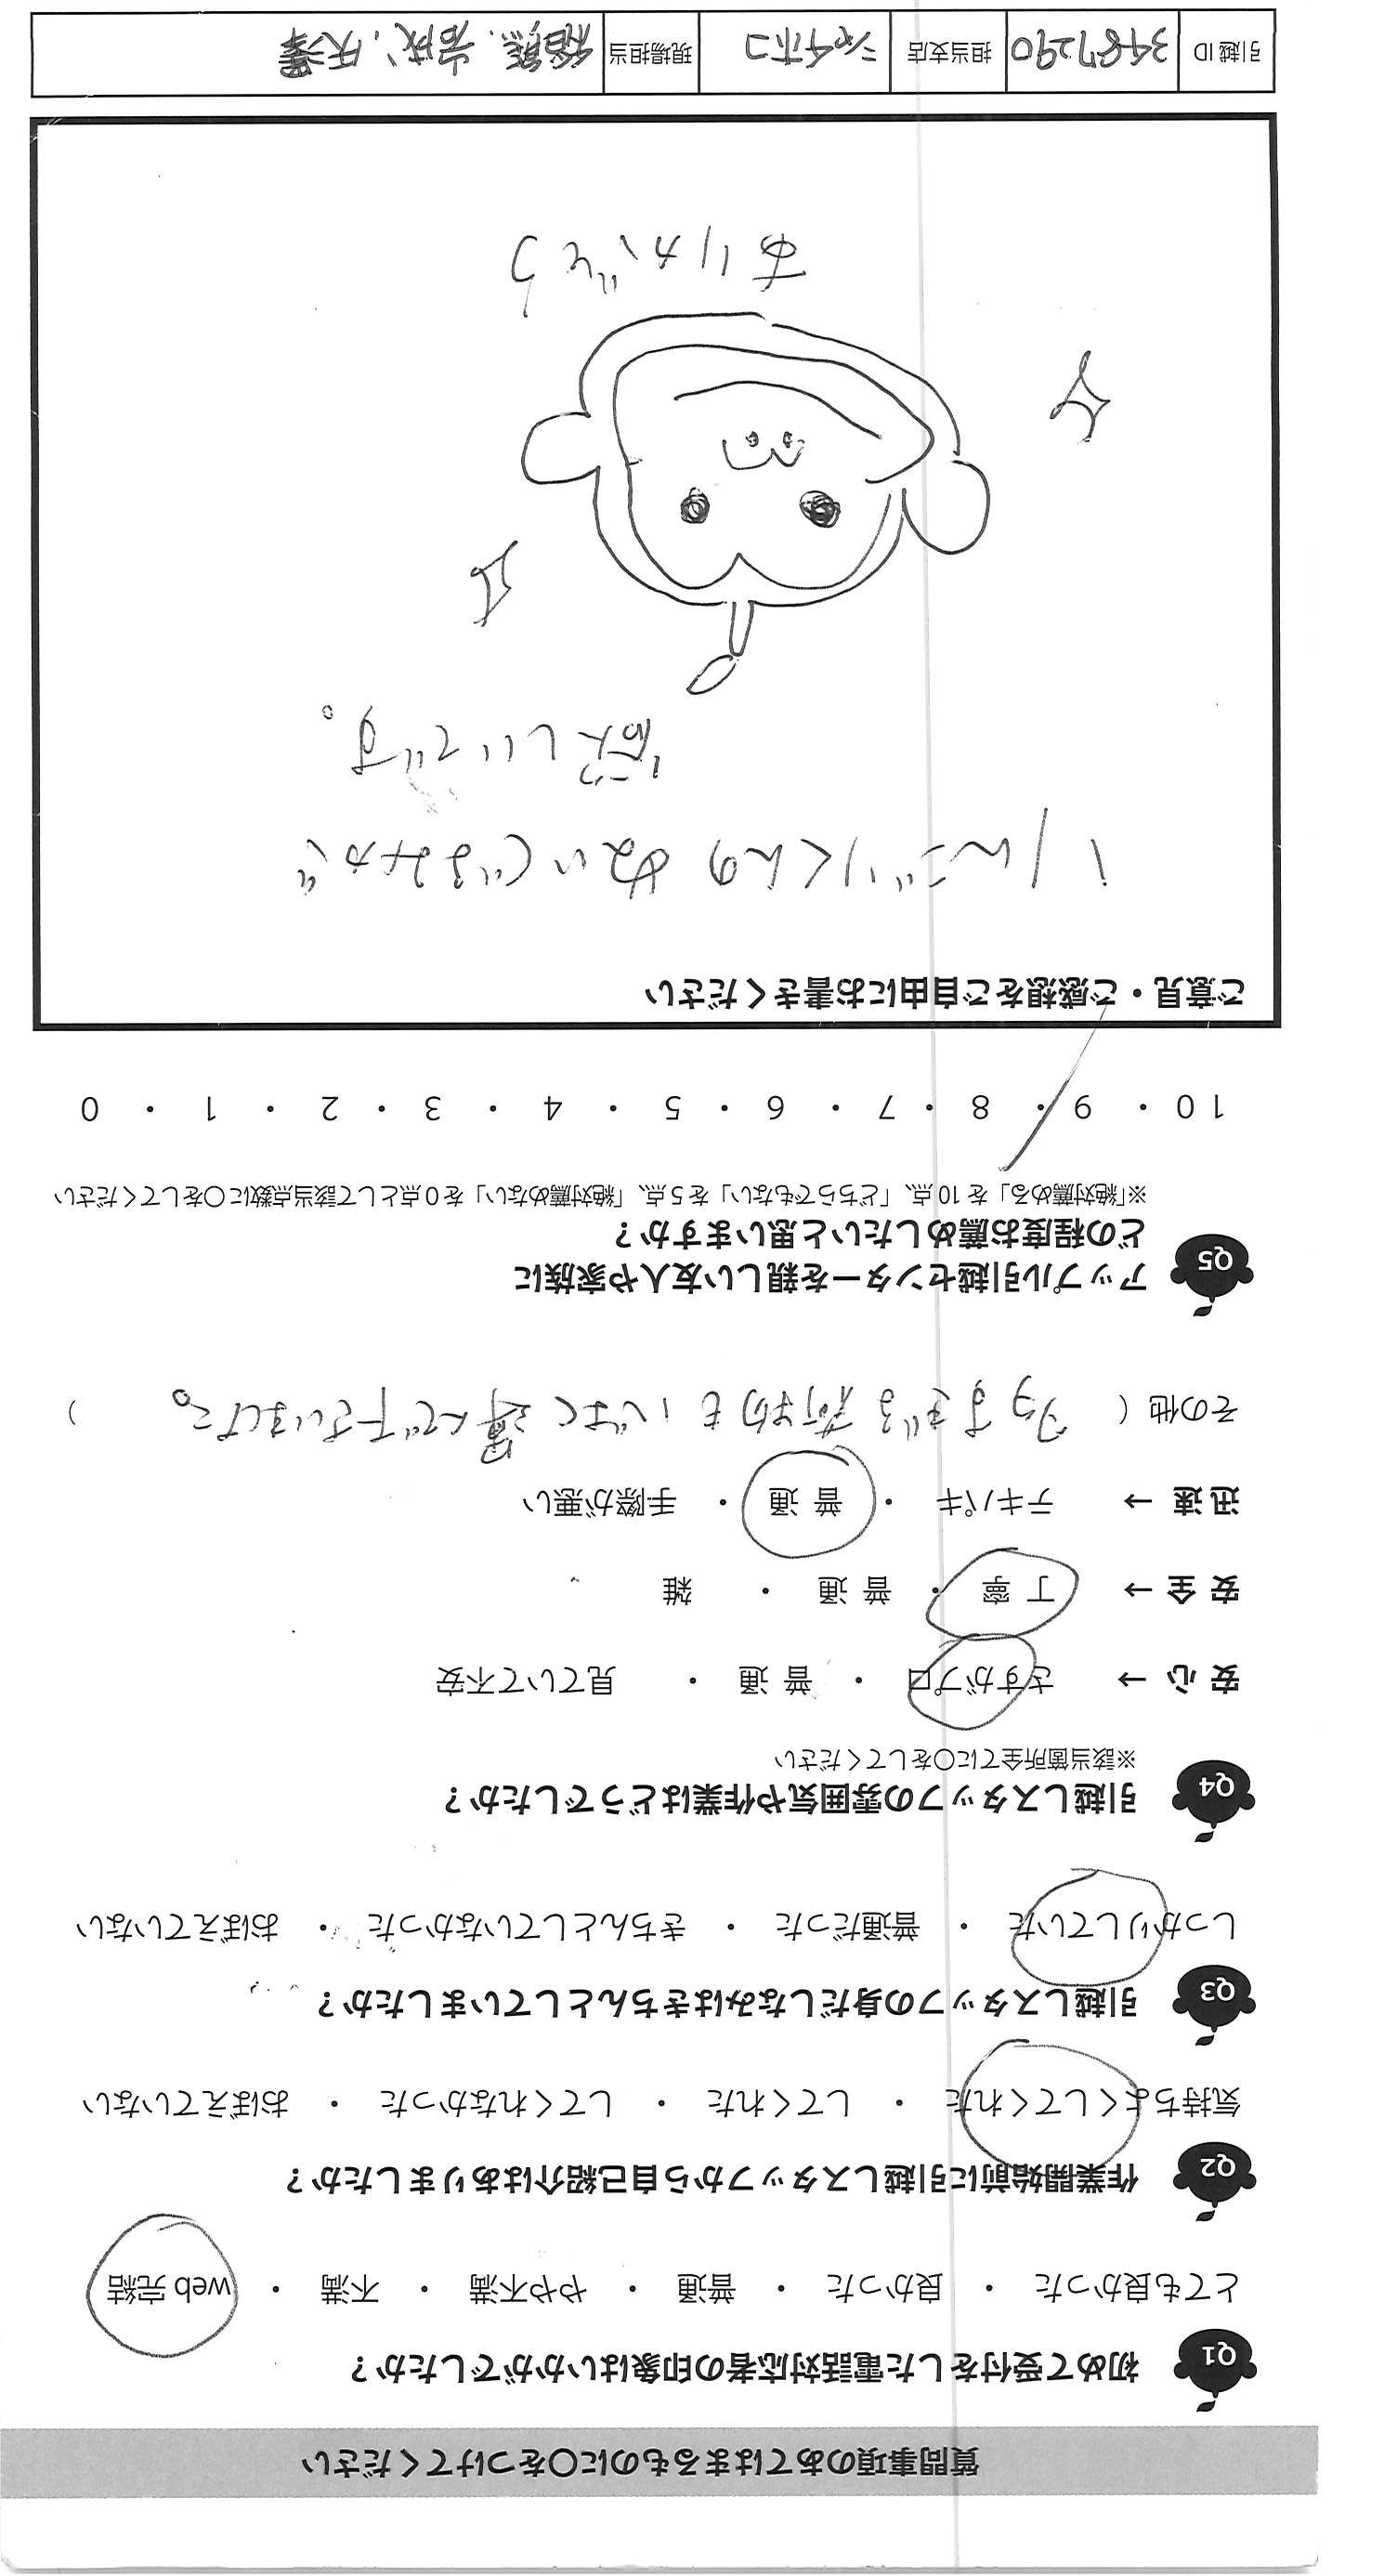 質問事項のあてはまるものに〇をつけてください
Q1 初めて受付をした電話対応者の印象はいかがでしたか?
とても良かった ・ 良かった ・ 普通 ・ やや不満 ・ 不満 ・ web 完結
Q2 作業開始前に引越しスタッフから自己紹介はありましたか?
気持ちよくしてくれた ・ してくれた ・ してくれなかった ・ おぼえていない
Q3 引越しスタッフの身だしなみはきちんとしていましたか?
しっかりしていた ・ 普通だった ・ きちんとしていなかった ・ おぼえていない
Q4 引越しスタッフの雰囲気や作業はどうでしたか?
※該当箇所全てに〇をしてください
安 心 → さすがプロ ・ 普 通 ・ 見ていて不安
安 全 → 丁 寧 ・ 普 通 ・ 雑
迅 速 → テキパキ ・ 普 通 ・ 手際が悪い
その他 ( 多すぎる荷物も いなく 運んで下さいました。 )
Q5 アップル引越センターを親しい友人や家族に
どの程度お薦めしたいと思いますか?
※「絶対薦める」を 10 点、「どちらでもない」を 5 点、「絶対薦めない」を 0 点として該当点数に〇をしてください
10 ・ 9 ・ 8 ・ 7 ・ 6 ・ 5 ・ 4 ・ 3 ・ 2 ・ 1 ・ 0
ご意見・ご感想をご自由にお書きください
りんごりくんの ぬいぐるみが
欲しいです。
ありがとう
引越 ID 3487290 担当支店 シャチホコ 現場担当 稲熊、岩成、矢澤